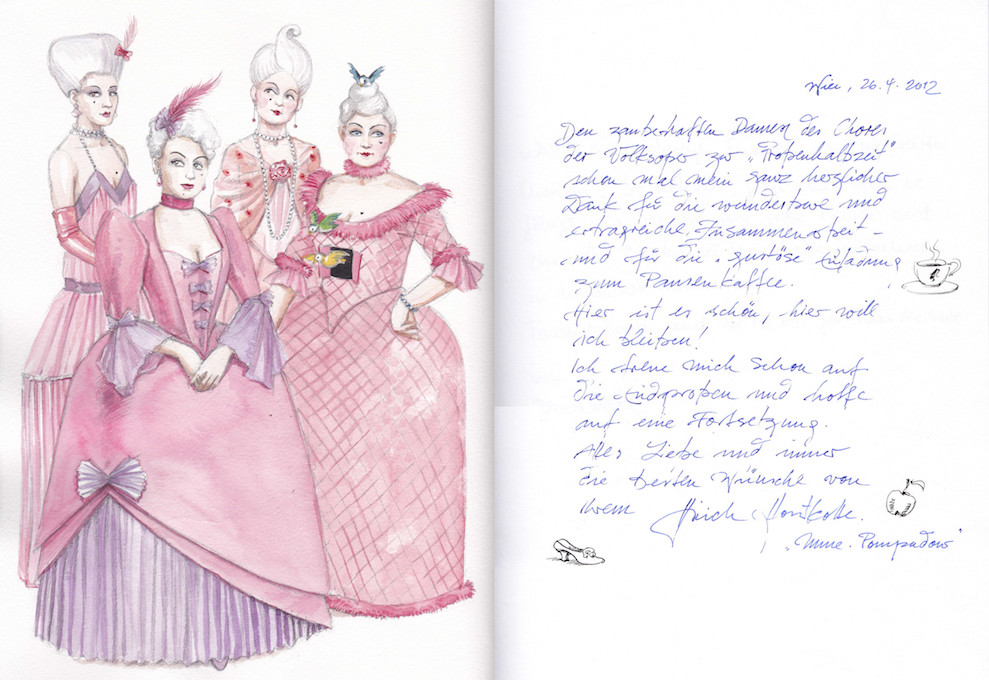 Wien, 26.4.2012
Den zauberhaften Damen des Chores
der Volksoper zur „Probenhalbzeit"
schon mal mein ganz herzlicher
Dank für die wunderbare und
ertragreiche Zusammenarbeit –
und für die Einladung
zum Pausenkaffee.
Hier ist es schön, hier will
ich bleiben!
Ich freue mich schon auf
die Endproben und hoffe
auf eine Fortsetzung.
Alles Liebe und immer
die besten Wünsche von
Ihrem
„Mme. Pompadour"